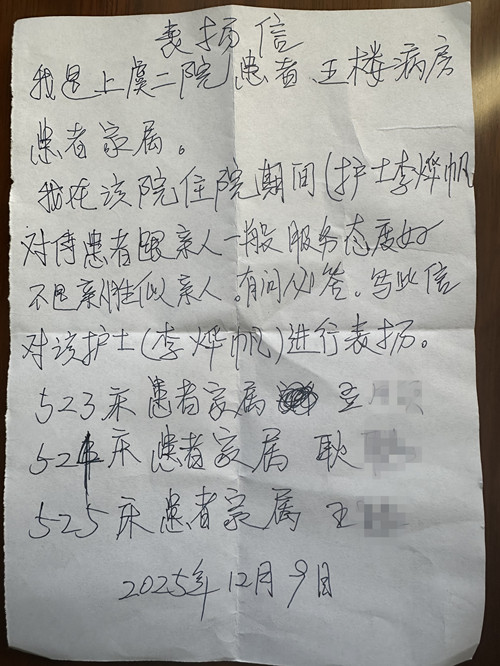 表扬信
我是上虞二院患者、五楼病房
患者家属。
我在该院住院期间(护士李烨帆
对待患者跟亲人一般服务态度好
不是亲人胜似亲人。有问必答。写此信
对该护士(李烨帆)进行表扬。
523床患者家属 王
521床 患者家属 耿
525床患者家属 王
2025年12月9日